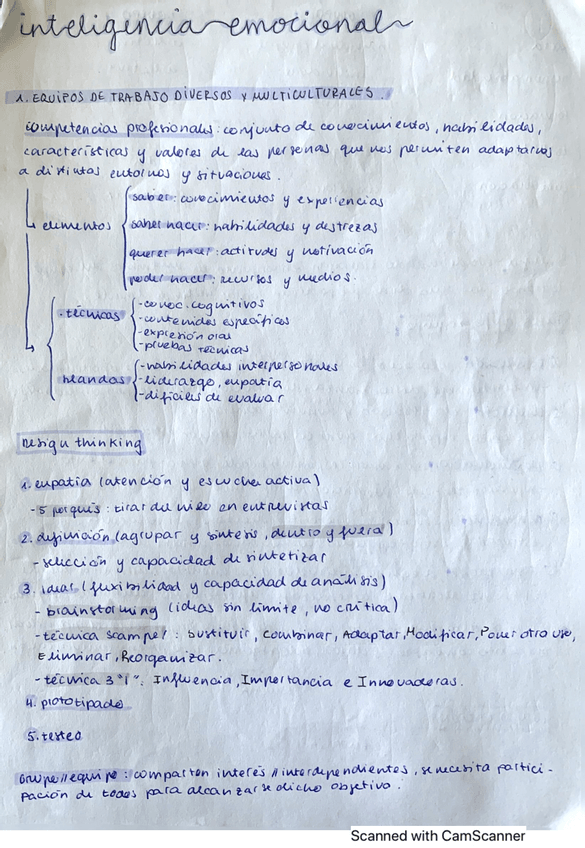 inteligencia emocional
1. EQUIPOS DE TRABAJO DIVERSOS Y MULTICULTURALES.
competencias profesionales: conjunto de conocimientos, habilidades,
características y valores de las personas que nos permiten adaptarnos
a distintos entornos y situaciones.
elementos
saber: conocimientos y experiencias
saber hacer: habilidades y destrezas
querer hacer: actitudes y motivación
poder hacer: recursos y medios.
·técnicas
-conoc. cognitivos
-contenidos específicos
-expresión oral
-pruebas técnicas
blandas
-habilidades interpersonales
-liderazgo, empatía
-difíciles de evaluar
Design thinking
1. empatía (atención y escucha activa)
-5 porqués: tirar del hilo en entrevistas
2. definición (agrupar y síntesis, dentro y fuera)
-selección y capacidad de sintetizar
3. idear (flexibilidad y capacidad de análisis)
- brainstorming (ideas sin límite, no crítica)
-técnica scamper: Sustituir, Combinar, Adaptar, Modificar, Poner otro uso,
Eliminar, Reorganizar.
-técnica 3 "i": Influencia, Importancia e Innovadoras.
4. prototipado
5. testeo
Grupo//equipo: comparten interés // interdependientes, se necesita partici-
pación de todos para alcanzarse dicho objetivo.
Scanned with CamScanner